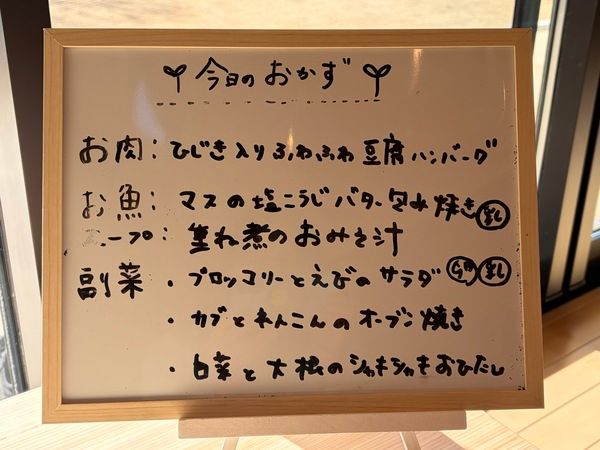 今日のおかず
お肉：ひじき入りふわふわ豆腐ハンバーグ
お魚：マスの塩こうじバター包み焼き 乳
スープ：重ね煮のおみそ汁
副菜・ブロッコリーとえびのサラダ 乳
・カブとれんこんのオーブン焼き
・白菜と大根のシャキシャキおひたし